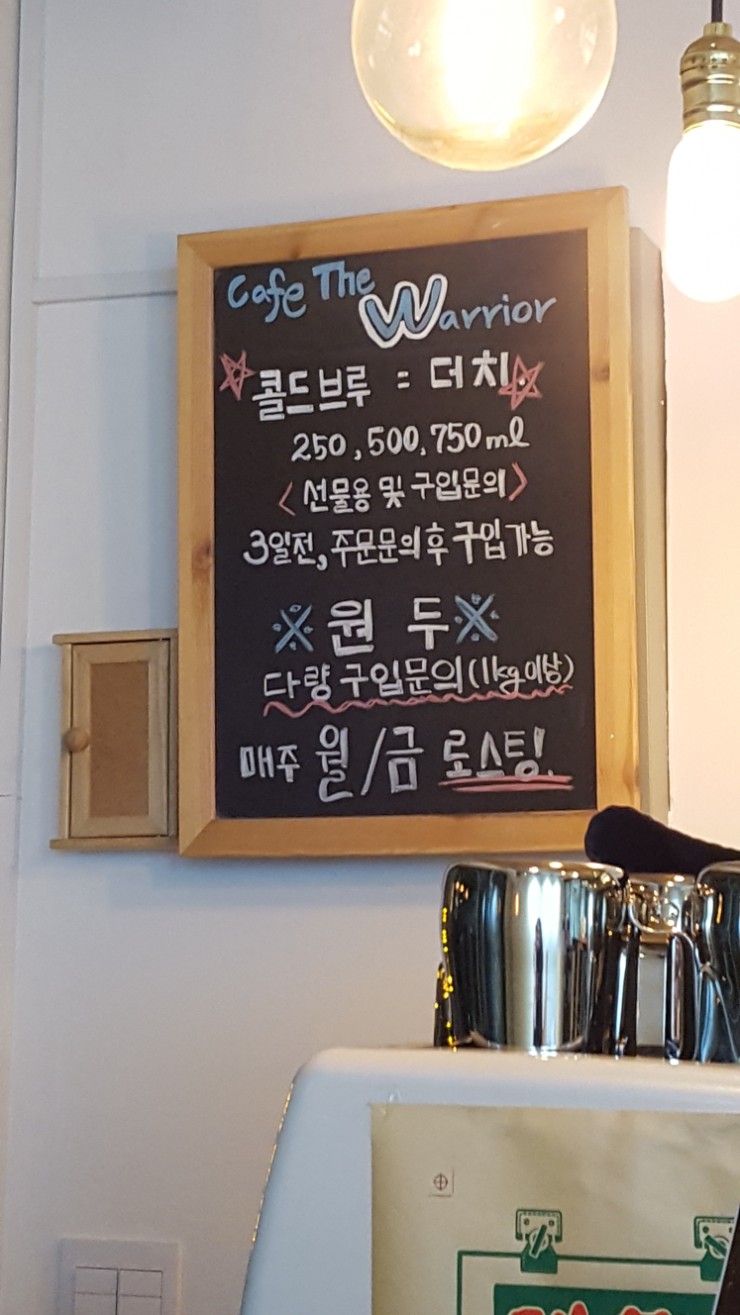 Cafe The Warrior
콜드브루 = 더치.
250, 500, 750ml
< 선물용 및 구입문의 >
3일전, 주문문의 후 구입가능
※ 원두 ※
다량 구입문의 (1kg 이상)
매주 월/금 로스팅.